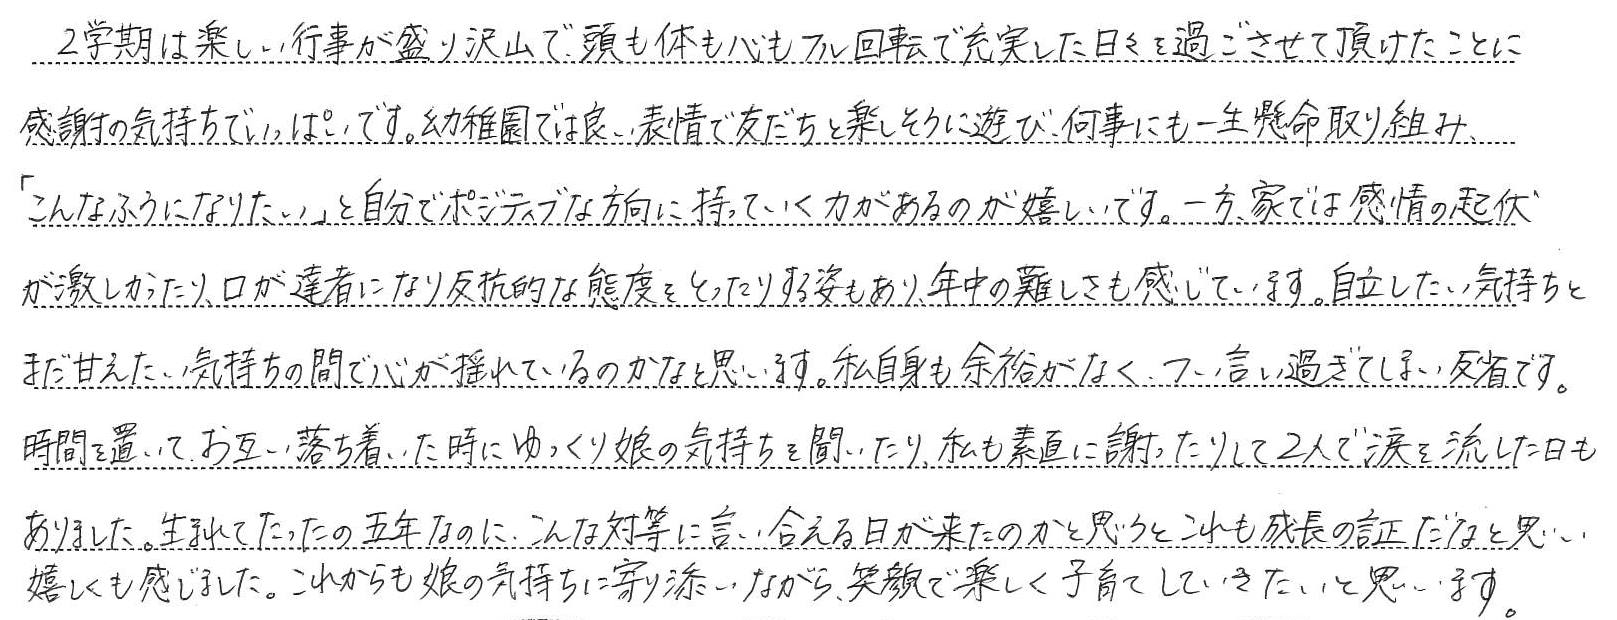 2学期は楽しい行事が盛り沢山で、頭も体も心もフル回転で充実した日々を過ごさせて頂けたことに
感謝の気持ちでいっぱいです。幼稚園では良い表情で友だちと楽しそうに遊び、何事にも一生懸命取り組み、
「こんなふうになりたい」と自分でポジティブな方向に持っていく力があるのが嬉しいです。一方、家では感情の起伏
が激しかったり、口が達者になり反抗的な態度をとったりする姿もあり、年中の難しさも感じています。自立したい気持ちと
まだ甘えたい気持ちの間で心が揺れているのかなと思います。私自身も余裕がなく、つい言い過ぎてしまい反省です。
時間を置いて、お互い落ち着いた時にゆっくり娘の気持ちを聞いたり、私も素直に謝ったりして2人で涙を流した日も
ありました。生まれてたったの五年なのに、こんな対等に言い合える日が来たのかと思うとこれも成長の証だなと思い
嬉しくも感じました。これからも娘の気持ちに寄り添いながら、笑顔で楽しく子育てしていきたいと思います。